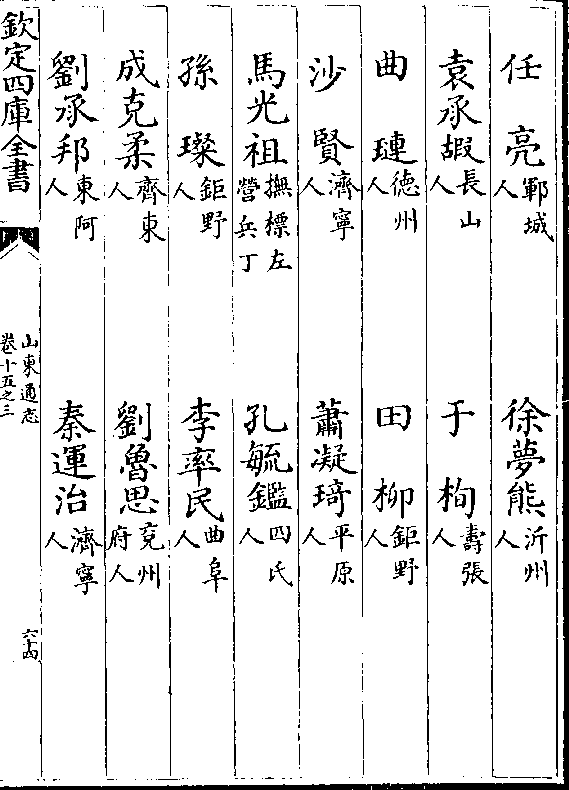 任亮鄆城人 徐夢熊沂州人
袁承嘏長山人 于栒壽張人
曲璉德州人 田柳鉅野人
沙賢濟寧人 蕭凝琦平原人
馬光祖撫標左營兵丁 孔毓鑑四氏人
孫璨鉅野人 李率民曲阜人
成克柔齊東人 劉魯思兗州府人
劉承邦東阿人 秦運治濟寧人
欽定四庫全書
山東通志
卷十五之三
六十四